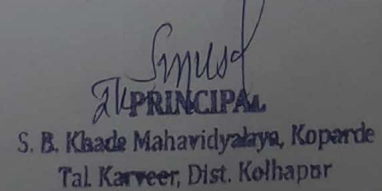 PRINCIPAL
S. B. Khade Mahavidyalaya, Koparde
Tal. Karveer, Dist. Kolhapur